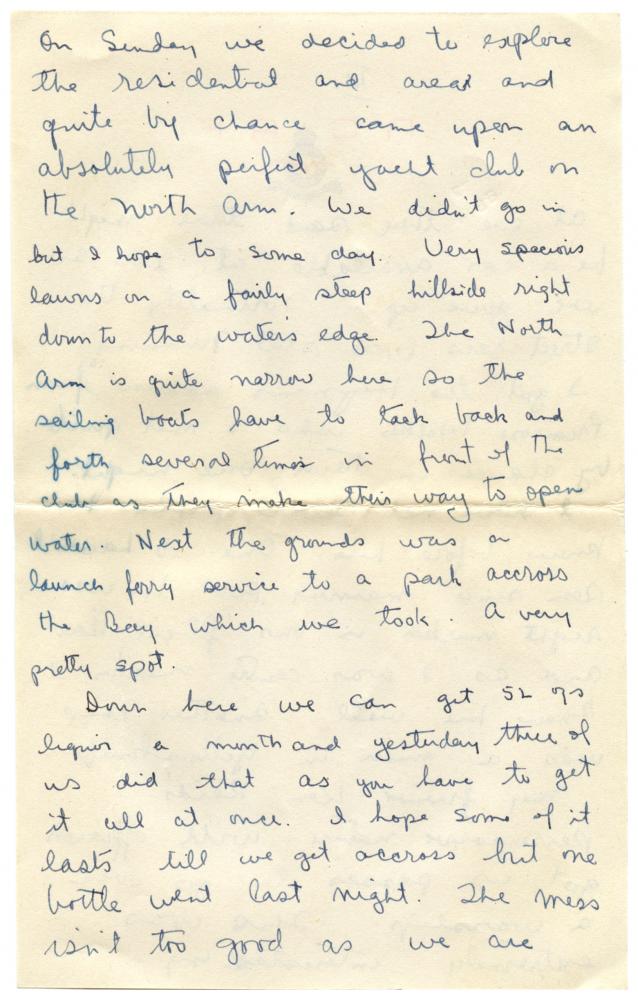 On Sunday we decided to explore
the residential and areas and
quite by chance came upon an
absolutely perfect yacht club on
the North Arm. We didn't go in
but I hope to some day. Very spacious
lawns on a fairly steep hillside right
down to the water's edge. The North
Arm is quite narrow here so the
sailing boats have to tack back and
forth several times in front of the
club as they make their way to open
water. Next the grounds was a
launch ferry service to a park accross
the Bay which we took. A very
pretty spot.
Down here we can get 52 ozs
liquor a month and yesterday three of
us did that as you have to get
it all at once. I hope some of it
lasts till we get accross but one
bottle went last night. The mess
isn't too good as we are